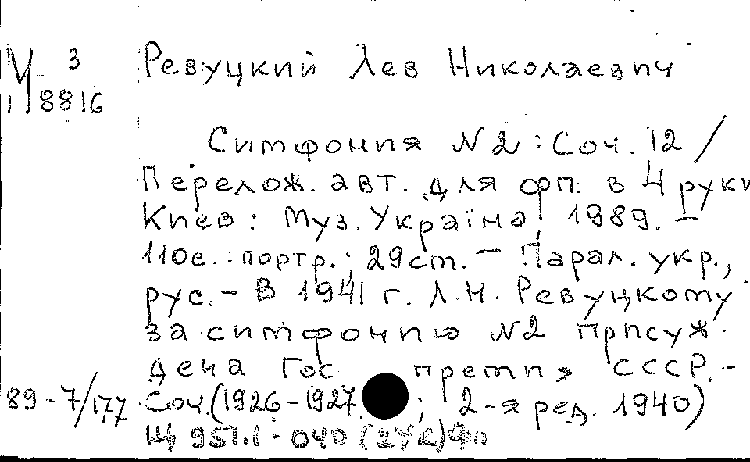 У 3 Ревуцкий Лев Николаевич
1 8816
Симфония №2 : Соч. 12 /
Перелож. авт. для фп. в 4 руки
Киев : Муз. Україна, 1989. —
110с. : портр. ; 29 см. — Парал. укр.,
рус. — В 1941 г. Л.Н. Ревуцкому
за симфонию №2 присуж-
дена Гос. премия СССР. —
89-7/177 Соч. (1926-1927 ; 2-я ред. 1940)